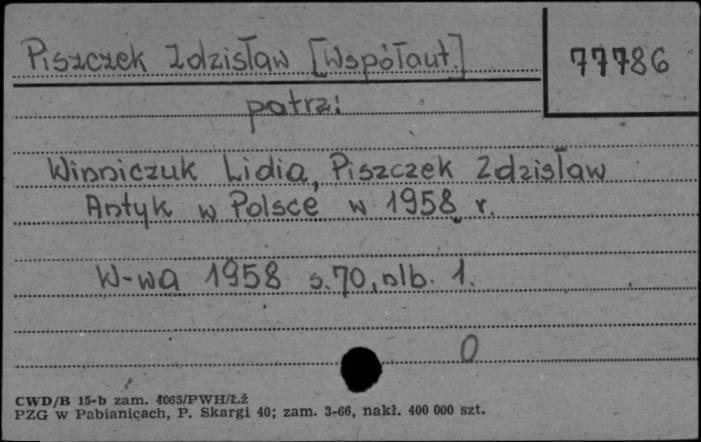 Piszczek Zdzisław [Współaut.]
77786
patrz:
Winniczuk Lidia, Piszczek Zdzisław
Antyk w Polsce w 1958 r.
W-wa 1958 s.70, nlb. 1.
0
CWD/B 15-b zam. 4065/PWH/Łż
PZG w Pabianicach, P. Skargi 40; zam. 3-66, nakł. 400 000 szt.